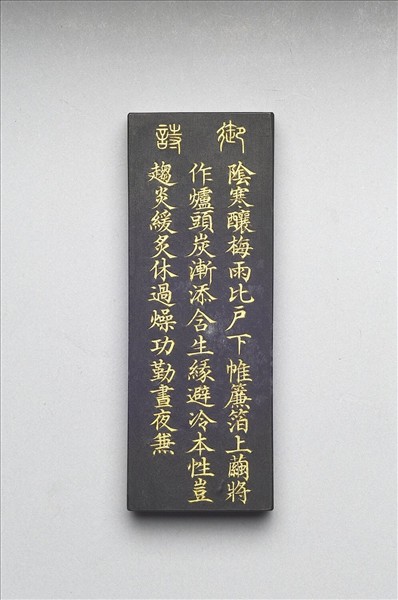 御詩
陰寒釀梅雨比户下帷簾箔上繭將
作爐頭炭漸添含生緣避冷本性豈
趨炎緩炙休過燥功勤晝夜兼